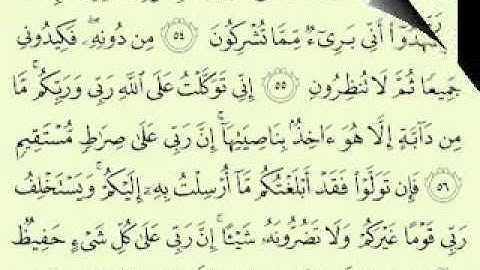 أَنِّى بَرِىٓءٌ مِّمَّا تُشْرِكُونَ ٥٤ مِن دُونِهِۦ ۖ فَكِيدُونِى
جَمِيعًا ثُمَّ لَا تُنظِرُونِ ٥٥ إِنِّى تَوَكَّلْتُ عَلَى ٱللَّهِ رَبِّى وَرَبِّكُم ۚ مَّا
مِن دَآبَّةٍ إِلَّا هُوَ ءَاخِذٌۢ بِنَاصِيَتِهَآ ۚ إِنَّ رَبِّى عَلَىٰ صِرَٰطٍ مُّسْتَقِيمٍ
٥٦ فَإِن تَوَلَّوْا۟ فَقَدْ أَبْلَغْتُكُم مَّآ أُرْسِلْتُ بِهِۦٓ إِلَيْكُمْ ۚ وَيَسْتَخْلِفُ
رَبِّى قَوْمًا غَيْرَكُمْ وَلَا تَضُرُّونَهُۥ شَيْـًٔا ۚ إِنَّ رَبِّى عَلَىٰ كُلِّ شَىْءٍ حَفِيظٌ